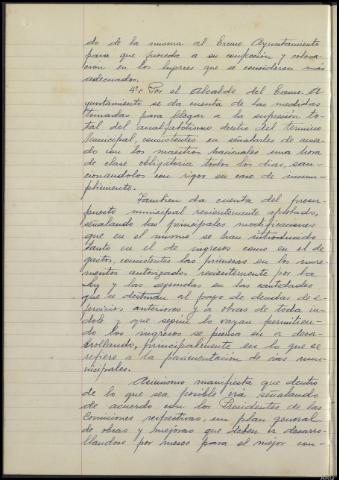 do de la misma al Excmo. Ayuntamiento
para que proceda a su confección y coloca-
cion en los lugares que se consideren mas
adecuados.
4º.- Por el Alcalde del Excmo. A-
yuntamiento se da cuenta de las medidas
tomadas para llegar a la supresion to-
tal del analfabetismo dentro del termino
Municipal, consistentes en señalar de acuer-
do con los maestros Nacionales una hora
de clase obligatoria todos los dias, san-
cionandolos con rigor en caso de incum-
plimiento.
Tambien da cuenta del presu-
puesto municipal recientemente aprobado,
señalando las principales modificaciones
que en el mismo se han introducido
tanto en el de ingresos como en el de
gastos, consistentes las primeras en los incre-
mentos autorizados recientemente por la
Ley y las segundas en las cantidades
que se destinan al pago de deudas de e-
jercicios anteriores y a obras de toda in-
dole y que segun lo vayan permitien-
do los ingresos se puedan ir desa-
rrollando, principalmente en lo que se
refiere a la pavimentacion de vias muni-
cipales.
Asimismo manifiesta que dentro
de lo que sea posible ira señalando
de acuerdo con los Presidentes de las
Comisiones respectivas, un plan general
de obras y mejoras que deben ir desarro-
llandose por meses para el mejor con-